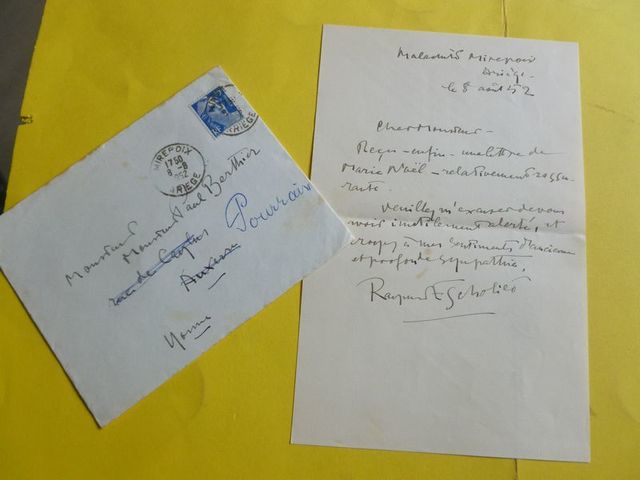 MIREPOIX
17 50
8 - 8
1952
ARIÈGE
ARIÈGE
Monsieur
Monsieur Paul Berthier
rue de
Auxerre
Pourrain
Yonne
Mirepoix
Ariège.
le 8 août 52
Cher Monsieur -
Reçu - enfin - une lettre de
Marie Noël - relativement rassu
rante.
Veuillez m'excuser de vous
avoir inutilement alerté, et
croyez à mes sentiments d'ancienne
et profonde sympathie,
Raymond Escholier